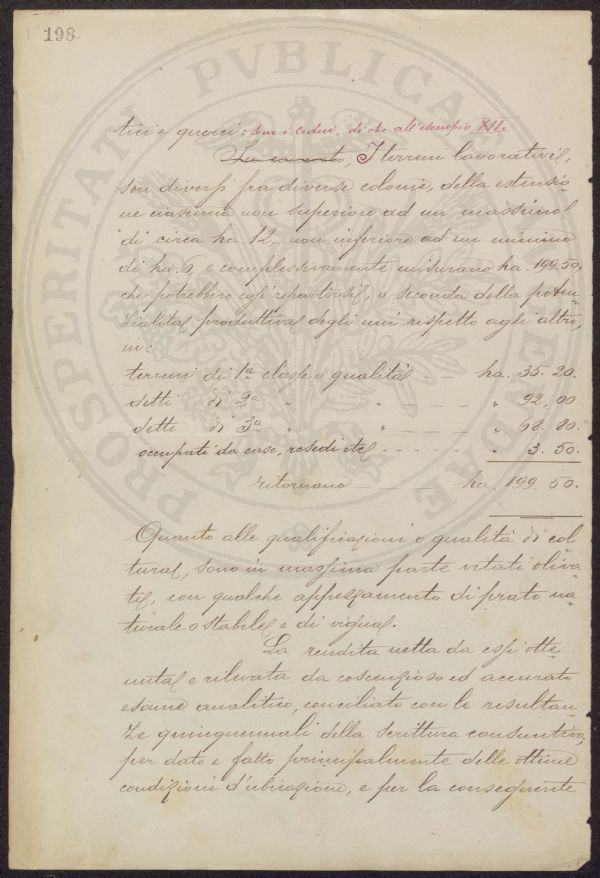 198
PROSPERITATI PVBLICAE AVGENDAE
tici e querci: sono i cedui, di che all'esempio
I terreni lavorativi,
son divisi fra diverse colonie, della estensio-
ne ciascuna non superiore ad un massimo
di circa ha. 12, non inferiore ad un minimo
di ha. 6, e complessivamente misurano ha. 199.50,
che potrebbero così repartirsi, a seconda della poten-
zialità produttiva degli uni rispetto agli altri,
in:
terreni di 1a classe o qualità - - ha. 35. 20.
detti di 2a " " - - - " 92. 00
detti di 3a " " - - - " 68. 80.
occupati da case, resedi etc - - - - " 3. 50.
ritornano - - - ha. 199. 50.
Quanto alle qualificazioni o qualità di col
tura, sono in massima parte vitati oliva
ti, con qualche appezzamento di prato na-
turale o stabile e di vigna.
La rendita netta da essi otte
nuta e rilevata da coscenzioso ed accurato
esame analitico, conciliato con le resultan-
ze quinquennali della scrittura consuntiva,
per dato e fatto principalmente delle ottime
condizioni d'ubicazione, e per la conseguente